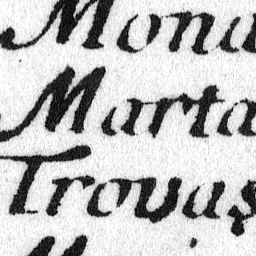 Mona
Marta
Trovas